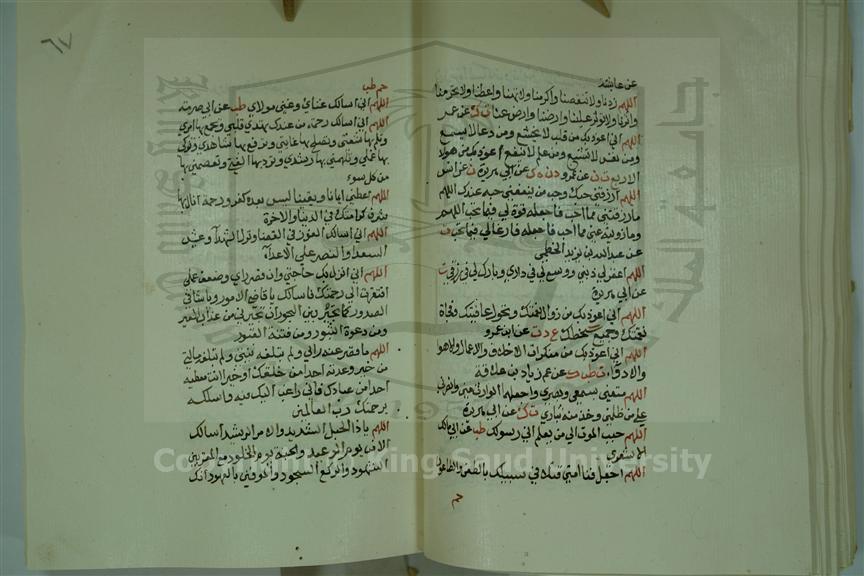 عن عائشة
اللهم زدنا ولا تنقصنا وأكرمنا ولا تهنا وأعطنا ولا تحرمنا
وآثرنا ولا تؤثر علينا وارضنا وارض عنا ت ك عن عمر
اللهم اني اعوذ بك من قلب لا يخشع ومن دعاء لا يسمع
ومن نفس لا تشبع ومن علم لا ينفع أعوذ بك من هؤلاء
الاربع ت ن عن عمرو د ن ه ك عن ابي هريرة ن عن انس
اللهم ارزقني حبك وحب من ينفعني حبه عندك اللهم
ما رزقتني مما احب فاجعله قوة لي فيما تحب اللهم
وما زويت عني مما احب فاجعله فراغا لي فيما تحب ت
عن عبد الله بن يزيد الخطمي
اللهم اغفر لي ذنبي ووسع لي في داري وبارك لي في رزقي ت
عن ابي هريرة
اللهم اني اعوذ بك من زوال نعمتك وتحول عافيتك وفجاة
نقمتك وجميع سخطك م د ت عن ابن عمرو
اللهم اني اعوذ بك من منكرات الاخلاق والاعمال والاهواء
والادواء ت طب ك عن عم زياد بن علاقة
اللهم متعني بسمعي وبصري واجعلهما الوارث مني وانصرني
على من ظلمني وخذ منه بثاري ت ك عن ابي هريرة
اللهم حبب الموت الي من يعلم اني رسولك طب عن ابي مالك
الاشعري
اللهم اجعل فنا امتي قتلا في سبيلك بالطعن والطاعون
حم
٦٧
حم طب
اللهم اني اسالك غناي وغنى مولاي طب عن ابي صرمة
اللهم اني اسالك رحمة من عندك تهدي بها قلبي وتجمع بها امري
وتلم بها شعثي وتصلح بها غايبي وترفع بها شاهدي وتزكي
بها عملي وتلهمني بها رشدي وترد بها الفتي وتعصمني بها
من كل سوء
اللهم اعطني ايمانا ويقينا ليس بعده كفر ورحمة انال بها
شرف كرامتك في الدنيا والاخرة
اللهم اني اسالك الفوز في القضا ونزل الشهدآ وعيش
السعدآ والنصر على الاعدآ
اللهم اني انزل بك حاجتي وان قصر رايي وضعف عملي
افتقرت الى رحمتك فاسالك يا قاضي الامور ويا شافي
الصدور كما تجير بين البحور ان تجيرني من عذاب السعير
ومن دعوة الثبور ومن فتنة القبور
اللهم ما قصر عنه رايي ولم تبلغه نيتي ولم تبلغه مسالتي
من خير وعدته احدا من خلقك او خير انت معطيه
احدا من عبادك فاني راغب اليك فيه واسالكه
برحمتك رب العالمين
اللهم ياذا الحبل الشديد والامر الرشيد اسالك
الامن يوم الوعيد والجنة يوم الخلود مع المقربين
الشهود والركع السجود والموفين بالعهود انك